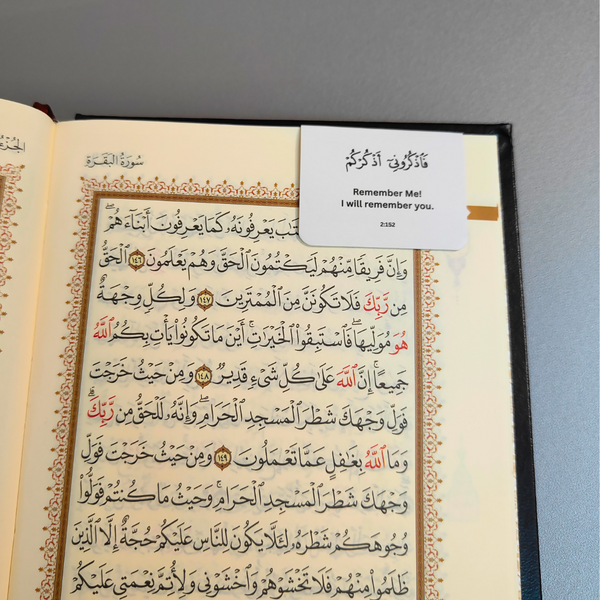 سُورَةُ الْبَقَرَةِ
فَٱذْكُرُونِىٓ أَذْكُرْكُمْ
Remember Me!
I will remember you.
2:152
يَعْرِفُونَهُۥ كَمَا يَعْرِفُونَ أَبْنَآءَهُمْ ۖ
وَإِنَّ فَرِيقًا مِّنْهُمْ لَيَكْتُمُونَ ٱلْحَقَّ وَهُمْ يَعْلَمُونَ ١٤٦ ٱلْحَقُّ
مِن رَّبِّكَ فَلَا تَكُونَنَّ مِنَ ٱلْمُمْتَرِينَ ١٤٧ وَلِكُلٍّ وِجْهَةٌ
هُوَ مُوَلِّيهَا ۖ فَٱسْتَبِقُوا۟ ٱلْخَيْرَٰتِ ۚ أَيْنَ مَا تَكُونُوا۟ يَأْتِ بِكُمُ ٱللَّهُ
جَمِيعًا ۚ إِنَّ ٱللَّهَ عَلَىٰ كُلِّ شَىْءٍ قَدِيرٌ ١٤٨ وَمِنْ حَيْثُ خَرَجْتَ
فَوَلِّ وَجْهَكَ شَطْرَ ٱلْمَسْجِدِ ٱلْحَرَامِ ۖ وَإِنَّهُۥ لَلْحَقُّ مِن رَّبِّكَ ۗ
وَمَا ٱللَّهُ بِغَٰفِلٍ عَمَّا تَعْمَلُونَ ١٤٩ وَمِنْ حَيْثُ خَرَجْتَ فَوَلِّ
وَجْهَكَ شَطْرَ ٱلْمَسْجِدِ ٱلْحَرَامِ ۚ وَحَيْثُ مَا كُنتُمْ فَوَلُّوا۟
وُجُوهَكُمْ شَطْرَهُۥ لِئَلَّا يَكُونَ لِلنَّاسِ عَلَيْكُمْ حُجَّةٌ إِلَّا ٱلَّذِينَ
ظَلَمُوا۟ مِنْهُمْ فَلَا تَخْشَوْهُمْ وَٱخْشَوْنِى وَلِأُتِمَّ نِعْمَتِى عَلَيْكُمْ